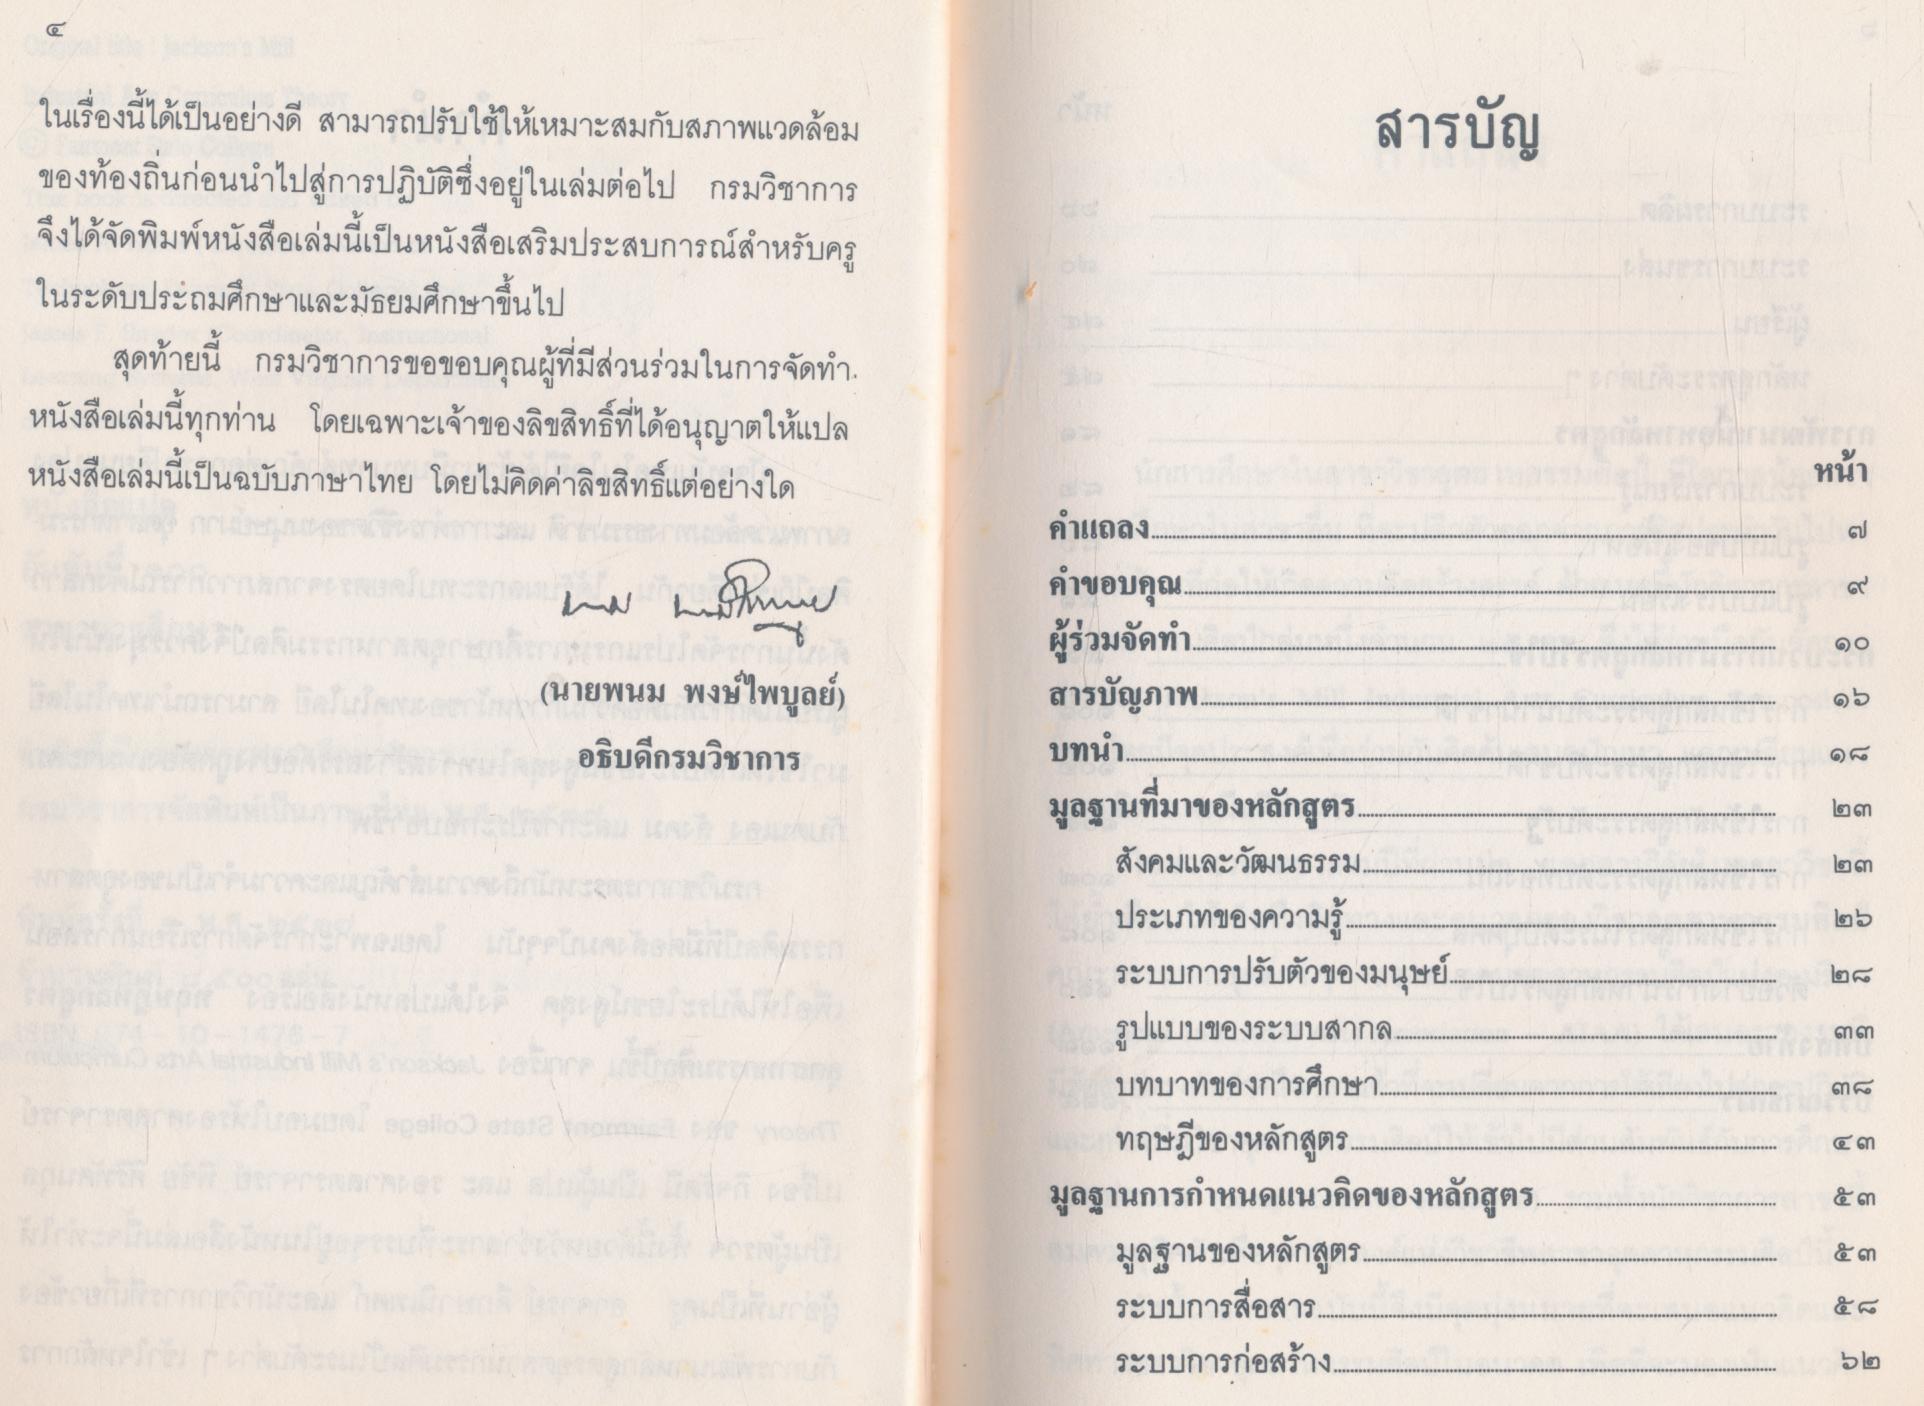 ๔
ในเรื่องนี้ได้เป็นอย่างดี สามารถปรับใช้ให้เหมาะสมกับสภาพแวดล้อม
ของท้องถิ่นก่อนนำไปสู่การปฏิบัติซึ่งอยู่ในเล่มต่อไป กรมวิชาการ
จึงได้จัดพิมพ์หนังสือเล่มนี้เป็นหนังสือเสริมประสบการณ์สำหรับครู
ในระดับประถมศึกษาและมัธยมศึกษาขึ้นไป
สุดท้ายนี้ กรมวิชาการขอขอบคุณผู้ที่มีส่วนร่วมในการจัดทำ
หนังสือเล่มนี้ทุกท่าน โดยเฉพาะเจ้าของลิขสิทธิ์ที่ได้อนุญาตให้แปล
หนังสือเล่มนี้เป็นฉบับภาษาไทย โดยไม่คิดค่าลิขสิทธิ์แต่อย่างใด
(นายพนม พงษ์ไพบูลย์)
อธิบดีกรมวิชาการ
สารบัญ
หน้า
คำแถลง ๗
คำขอบคุณ ๙
ผู้ร่วมจัดทำ ๑๐
สารบัญภาพ ๑๖
บทนำ ๑๘
มูลฐานที่มาของหลักสูตร ๒๓
สังคมและวัฒนธรรม ๒๓
ประเภทของความรู้ ๒๖
ระบบการปรับตัวของมนุษย์ ๒๘
รูปแบบของระบบสากล ๓๓
บทบาทของการศึกษา ๓๘
ทฤษฎีของหลักสูตร ๔๓
มูลฐานการกำหนดแนวคิดของหลักสูตร ๕๓
มูลฐานของหลักสูตร ๕๓
ระบบการสื่อสาร ๕๘
ระบบการก่อสร้าง ๖๒